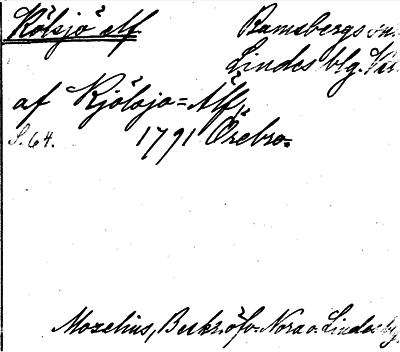 Kölsjö älf Ramsbergs sn.
Lindes blg. Väs
af Kjölsjo=Älf,
S. 64. 1791 Örebro=
Mozelius, Beskr. öfv. Nora o. Linde